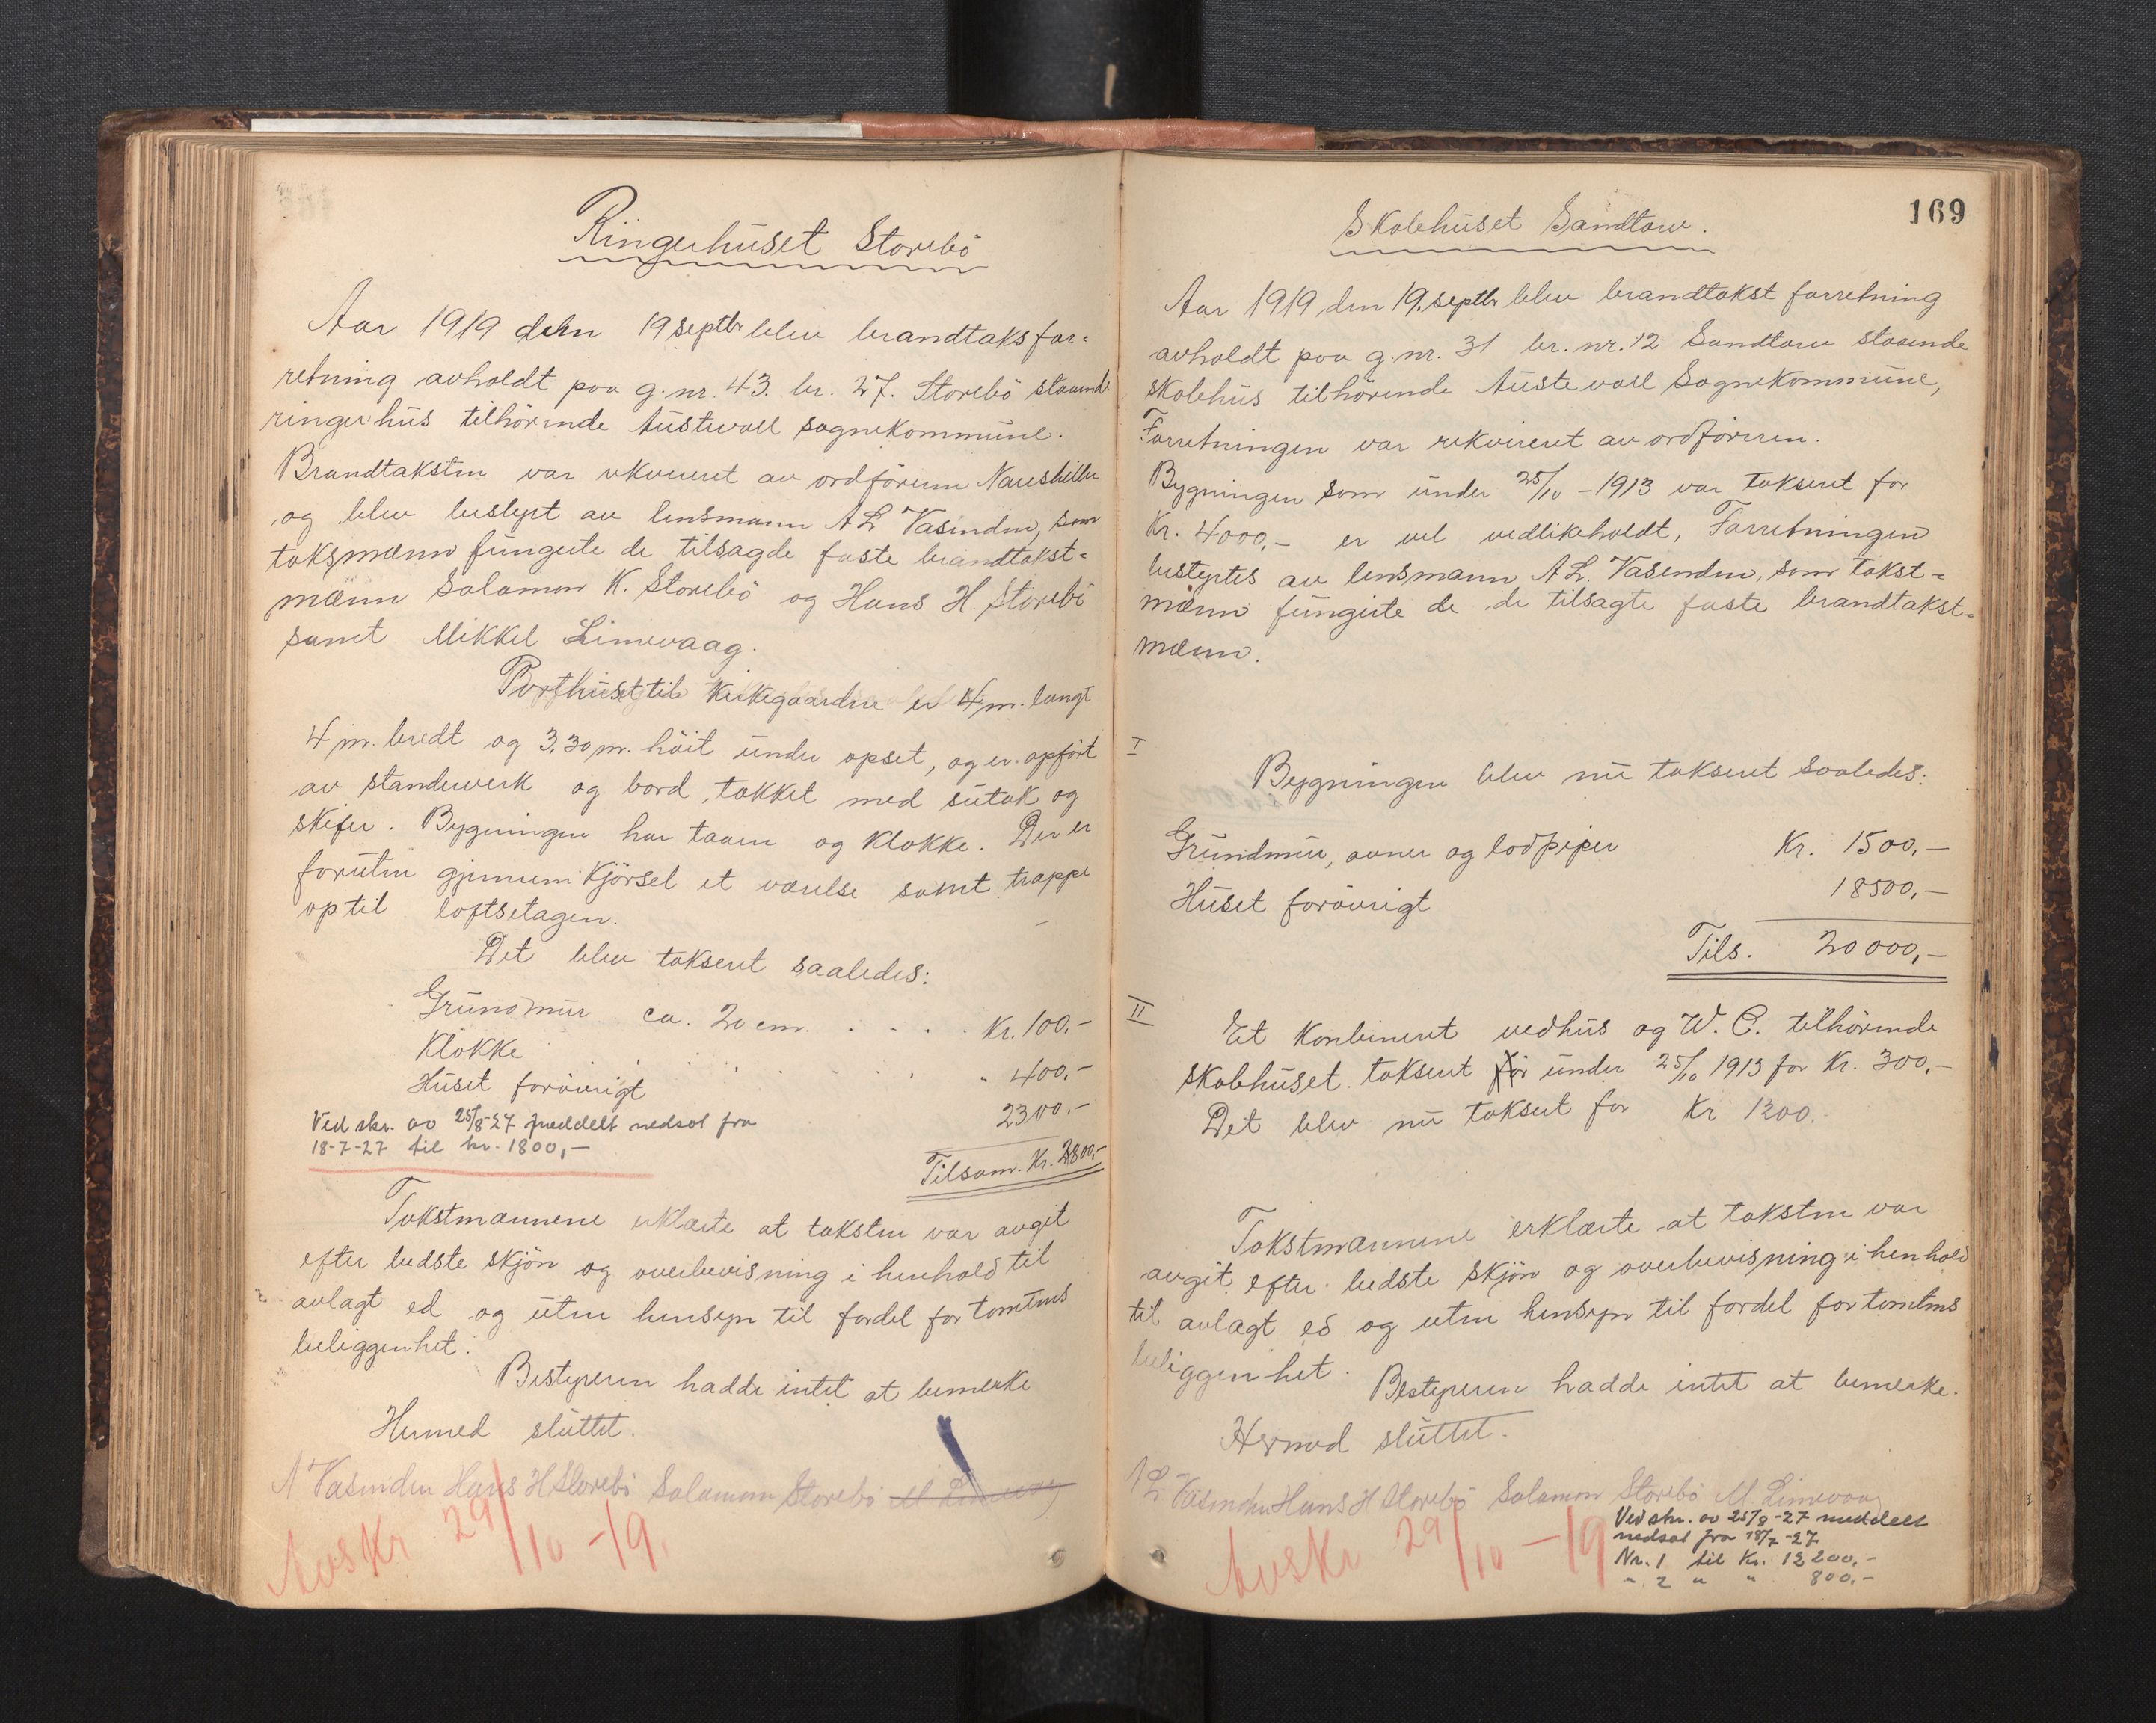 Ringerhuset Storebö
Aar 1919 den 19 septbr blev brandtaksfor=
retning avholdt paa g. nr. 43. br. 27. Storebö staaende
ringerhus tilhörende Austevoll sognekommune.
Brandtaksten var rekvireret av ordföreren Naushille
og blev bestyrt av lensmann A L Vasenden, som
taksmænn fungerte de tilsagde faste brandtakst=
mænn Salamon K. Storebö og Hans H. Storebö
samt Mikkel Limevaag.
Porthuset til Kirkegaarden er 4 m. langt
4 m. bredt og 3,30 m. höit under opset, og er opfört
av standerverk og bord, takket med sutak og
skifer. Bygningen har taarn og klokke. Der er
foruten gjennemkjörsel et værelse samt trappe
op til loftsetagen.
Det blev taksert saaledes:
Grundmur ca. 20 cm. . . . . Kr. 100.-
Klokke . . . . . " 400,-
Huset forövrigt 2300.-
Ved skr. av 25/8-27 meddelt nedsat fra
18-7-27 til kr. 1800,-
Tilsam. Kr. 2800,-
Takstmannene erklærte at taksten var avgit
efter bedste skjön og overbevisning i henhold til
avlagt ed og uten hensyn til fordel for tomtens
beliggenhet.
Bestyreren hadde intet at bemerke
Hermed sluttet.
A Vasenden Hans H Storebö Salamon Storebö M Limevaag
Avskr 29/10 -19.
169
Skolehuset Sandtorv.
Aar 1919 den 19. septbr blev brandtakst forretning
avholdt paa g. nr. 31 br. nr. 12 Sandtorv staaende
skolehus tilhörende Austevoll Sognekommune,
Forretningen var rekvireret av ordföreren.
Bygningen som under 25/10 - 1913 var taksert for
Kr. 4000,- er vel vedlikeholdt, Forretningen
bestyrtes av lensmann A L. Vasenden, som takst=
mænn fungerte de de tilsagte faste brandtakst=
mænn.
I
Bygningen blev nu taksert saaledes:
Grundmur, ovner og lodpiper Kr. 1500,-
Huset forövrigt 18500,-
Tils. 20000,-
II
Et konbinert vedhus og W. C. tilhörende
skolehuset. taksert for under 25/10 1913 for Kr. 300,-
Det blev nu taksert for Kr 1200.
Takstmannene erklærte at taksten var
avgit efter bedste skjön og overbevisning i henhold
til avlagt ed og uten hensyn til fordel for tomtens
beliggenhet.
Bestyreren hadde intet at bemerke.
Hermed sluttet.
A L Vasenden Hans H Storebö Salamon Storebö M. Limevaag
Ved skr. av 25/8-27 meddelt
nedsat fra 18/7-27
Nr. 1 til Kr. 12200,-
" 2 " " 800,-
Avskr 29/10 -19